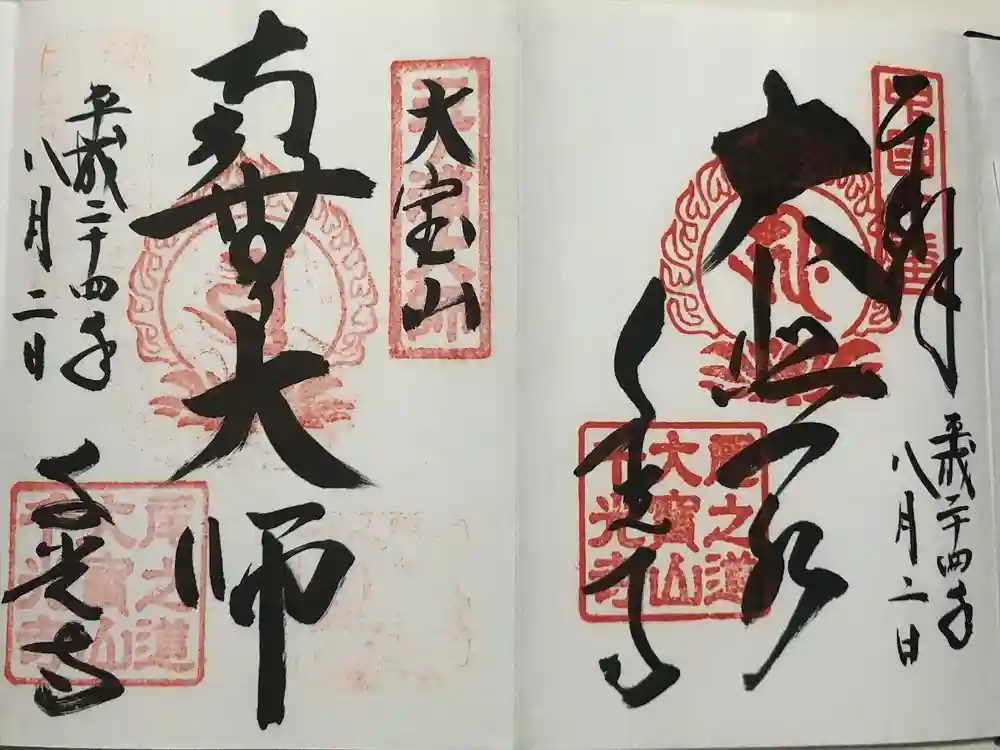 奉拝
平成二十四年
八月二日
大悲殿
千光寺
尾之道
大寳山
千光寺
大宝山
南無大師
平成二十四年
八月二日
千光寺
尾之道
大寳山
千光寺